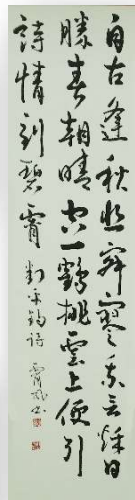 自古逢秋悲寂寥我言秋日
勝春朝晴空一鶴排雲上便引
詩情到碧霄 劉禹錫詩